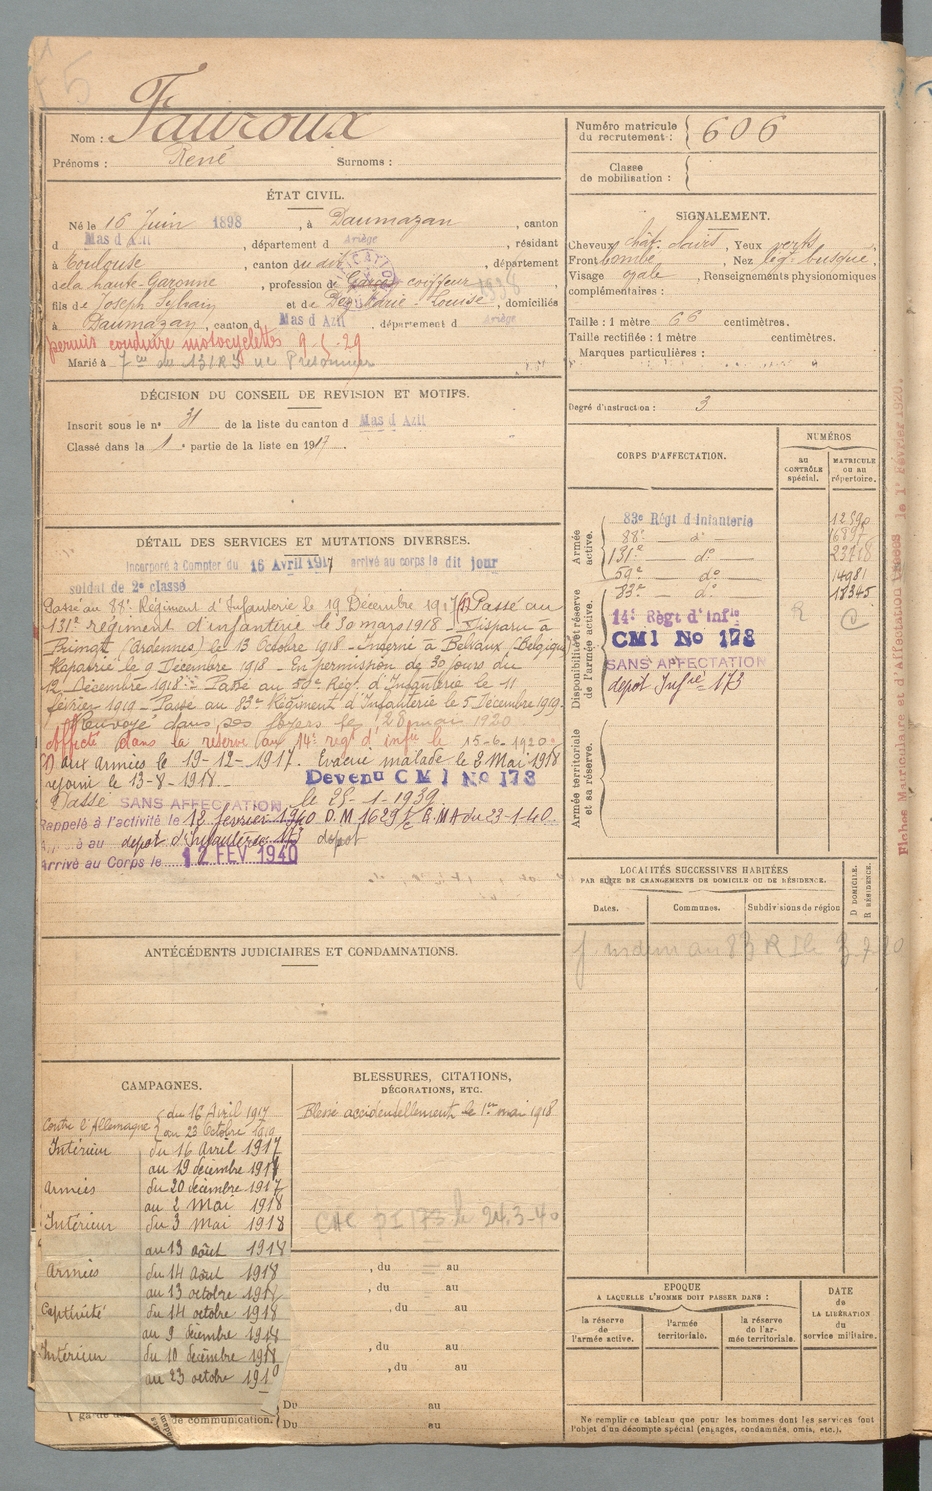 5
Nom : Fauroux
Prénoms : René Surnoms :
Numéro matricule du recrutement : 606
Classe de mobilisation :
ÉTAT CIVIL.
Né le 16 Juin 1898, à Daumazan, canton
d Mas d Azil, département d Ariège, résidant
à Toulouse, canton du dit, département
de la haute-Garonne, profession de coiffeur
fils de Joseph Sylvain et de Marie-Louise, domiciliés
à Daumazan, canton d Mas d Azil, département d Ariège
permis conduire motocyclettes 9-5-29
Marié à 7e du 131 RI Prisonnier
SIGNALEMENT.
Cheveux chât. clairs, Yeux verts
Front bombé, Nez légt busqué,
Visage ovale, Renseignements physionomiques
complémentaires :
Taille : 1 mètre 66 centimètres.
Taille rectifiée : 1 mètre centimètres.
Marques particulières :
DÉCISION DU CONSEIL DE RÉVISION ET MOTIFS.
Inscrit sous le n° 31 de la liste du canton d Mas d Azil
Classé dans la 1e partie de la liste en 1917.
Degré d'instruction : 3
CORPS D'AFFECTATION.
NUMÉROS
au CONTRÔLE spécial.
MATRICULE ou au répertoire.
Armée active.
83e Régt d'Infanterie 12590
88e — do — 16897
131e — do 23718
59e — do 14981
83e — do 18345
Disponibilité et réserve de l'armée active.
14e Régt d'Infie R
CM1 No 178
SANS AFFECTATION
depot Infrie 173
Armée territoriale et sa réserve.
DÉTAIL DES SERVICES ET MUTATIONS DIVERSES.
Incorporé à Compter du 16 Avril 1917 arrivé au corps le dit jour
soldat de 2e classe
Passé au 88e Régiment d'Infanterie le 19 Décembre 1917 (1) Passé au
131e régiment d'infanterie le 30 mars 1918 - Disparu à
(Ardennes) le 13 Octobre 1918 - Interné à Belvaux (Belgique)
Rapatrié le 9 Décembre 1918 - En permission de 30 jours du
12 Décembre 1918 - Passé au 59e Régt d'Infanterie le 11
février 1919 - Passé au 83e Régiment d'Infanterie le 5 Décembre 1919-
Renvoyé dans ses foyers le 28 mai 1920
affecté dans la réserve au 14e regt d'infie le 15-6-1920
(1) aux armées le 19-12-1917. Evacué malade le 3 Mai 1918
rejoint le 13-8-1918.- Devenu CM1 No 178
Passé SANS AFFECTATION le 25-1-1939
Rappelé à l'activité le 12 février 1940 D.M 1629 E.M.A du 23-1-40.
au depot d'Infanterie 173 depot
Arrivé au Corps le 12 FEV 1940
LOCALITÉS SUCCESSIVES HABITÉES
PAR SUITE DE CHANGEMENTS DE DOMICILE OU DE RÉSIDENCE.
Dates. Communes. Subdivisions de région D DOMICILE. R RÉSIDENCE.
au 83 R I le
ANTÉCÉDENTS JUDICIAIRES ET CONDAMNATIONS.
CAMPAGNES.
Contre l'Allemagne du 16 Avril 1917
au 23 Octobre 1919
Intérieur du 16 Avril 1917
au 19 décembre 1917
Armées du 20 décembre 1917
au 2 Mai 1918
Intérieur du 3 Mai 1918
au 13 août 1918
Armées du 14 Août 1918
au 13 octobre 1918
Captivité du 14 octobre 1918
au 9 décembre 1918
Intérieur du 10 decembre 1918
au 23 octobre
BLESSURES, CITATIONS,
DÉCORATIONS, ETC.
Blessé accidentellement le 1er mai 1918
173 le 24.3-40
, du au
, du au
, du au
, du au
, du au
Du au
Du au
de communication.
EPOQUE
A LAQUELLE L'HOMME DOIT PASSER DANS :
la réserve de l'armée active.
l'armée territoriale.
la réserve de l'armée territoriale.
DATE de LA LIBÉRATION du service militaire.
Ne remplir ce tableau que pour les hommes dont les services font
l'objet d'un décompte spécial (engagés, condamnés, omis, etc.).
Fiches Matriculaire et d'Affectation le 1er Février 1920.